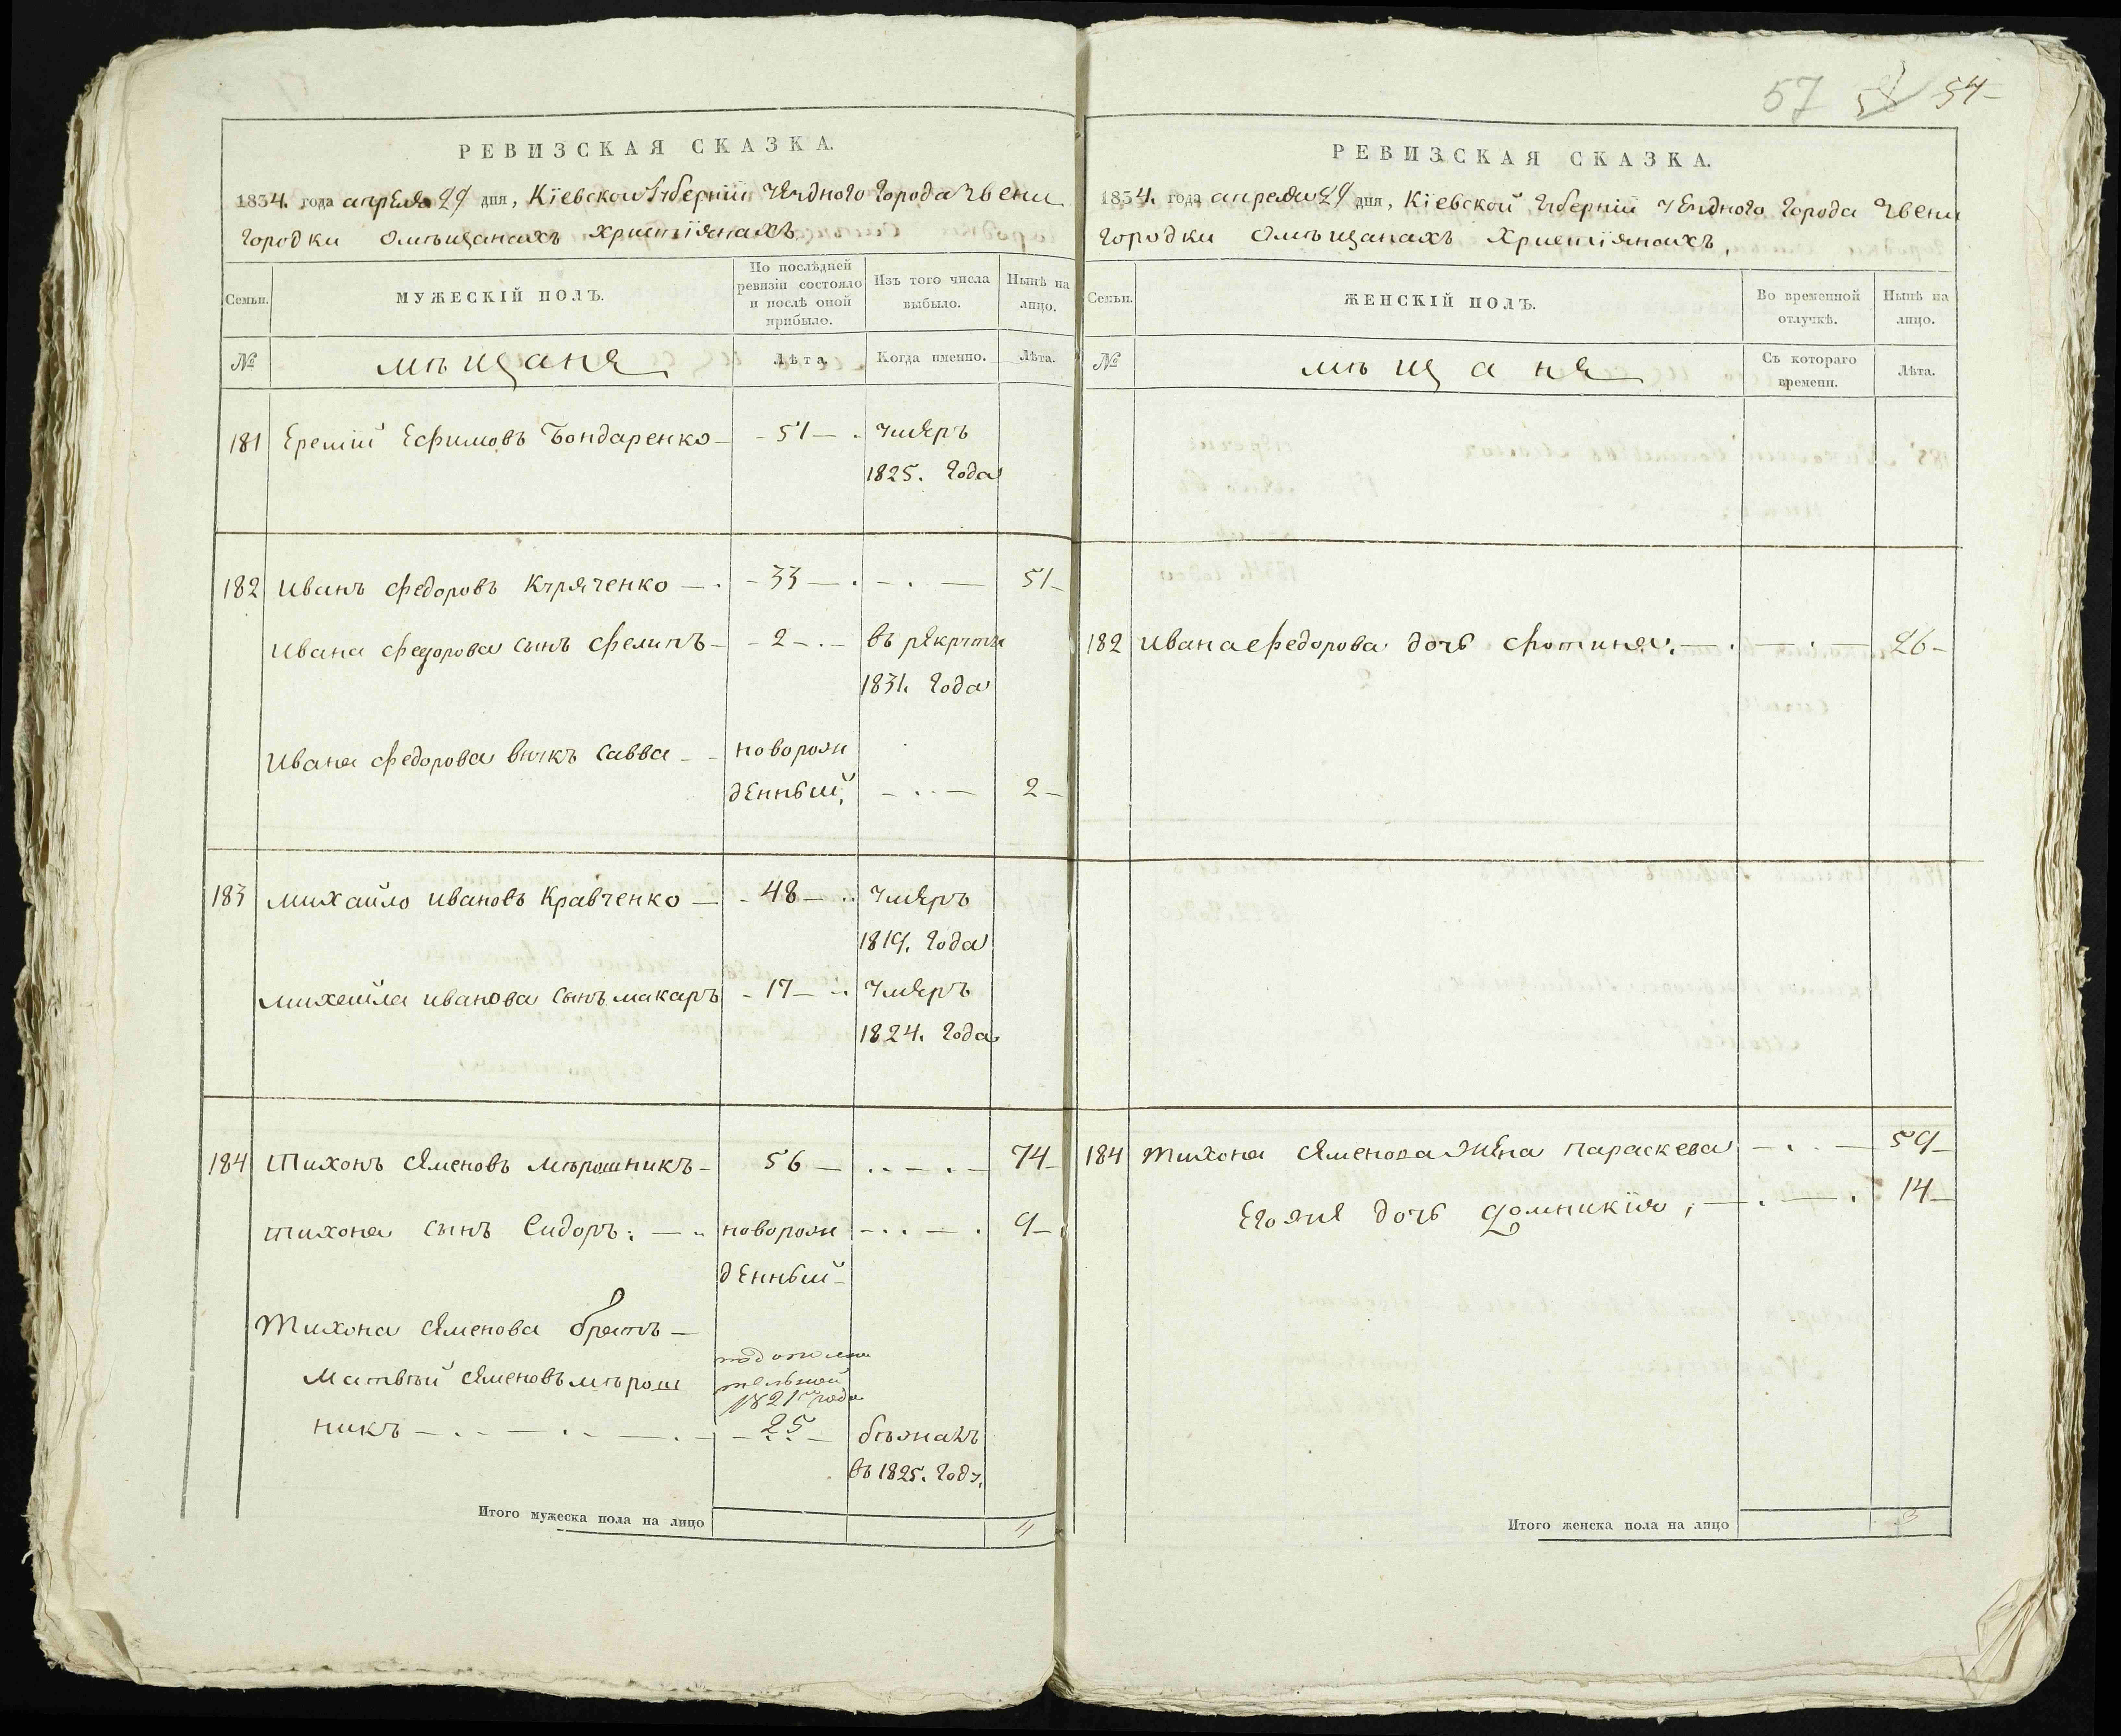 57 54 54
РЕВИЗСКАЯ СКАЗКА.
1834. года апреля 29 дня, Кїевской Губерніи уезднаго города Звени
городки омѣщанахъ христїянахъ
Семьи.
МУЖЕСКІЙ ПОЛЪ.
По послѣдней ревизіи состояло и послѣ оной прибыло.
Изъ того числа выбыло.
Нынѣ на лицо.
№
мѣщане
Лѣта.
Когда именно.
Лѣта.
181 Еремій Ефимовъ Бондаренко 51 умеръ
1825. года
182 Иванъ Федоровъ Куряченко 33 51
Ивана Федорова сынъ Фелипъ 2 въ рекруты
1831. года
Ивана Федорова внукъ Савва новорож
денный, 2
183 Михайло Ивановъ Кравченко 48 умеръ
1819. года
Михайла Иванова сынъ Макаръ 17 умеръ
1824. года
184 Тихонъ Семеновъ Мѣрошникъ 56 74
Тихона сынъ Сидоръ: новорож 9
денный
Тихона Семенова братъ
Матвѣй Семеновъ Мѣрош
никъ
1821 года
25 бѣжалъ
въ 1825. году.
Итого мужеска пола на лицо 4
РЕВИЗСКАЯ СКАЗКА.
1834. года апреля 29 дня, Кїевской Губерніи уезднаго города Звени
городки омѣщанахъ христїянахъ,
Семьи.
ЖЕНСКІЙ ПОЛЪ.
Во временной отлучкѣ.
Нынѣ на лицо.
№
мѣщане
Съ котораго времени.
Лѣта.
182 Ивана Федорова дочь Фотиня. 26
184 Тихона Семенова жена Параскева 59
Егоже дочь Домникїя, 14
Итого женска пола на лицо 3